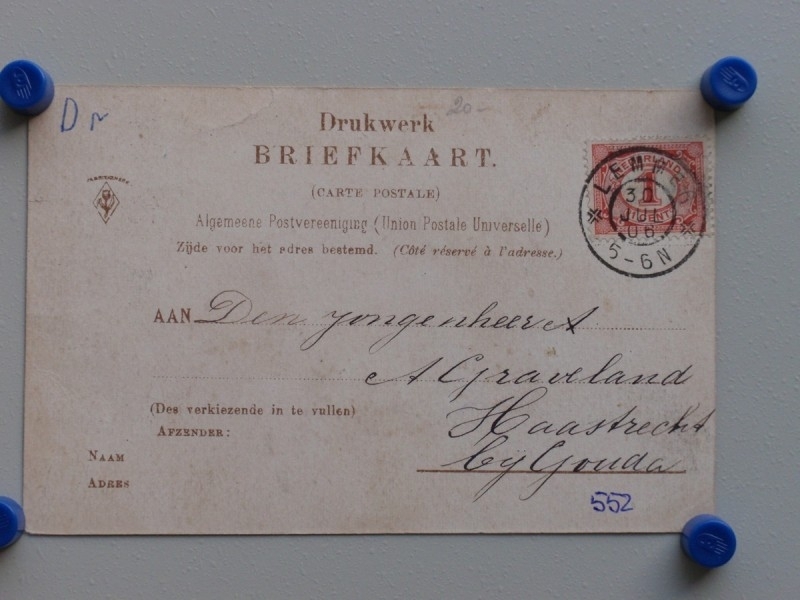 20-
Dr
Drukwerk
BRIEFKAART.
(CARTE POSTALE)
Algemeene Postvereeniging (Union Postale Universelle)
Zijde voor het adres bestemd. (Côté réservé à l'adresse.)
NEDERLAND
1
CENT
LEMMER
30 JUL 06
5-6N
AAN Den jongenheer A
A Graveland
(Des verkiezende in te vullen)
Haastrecht
AFZENDER:
by Gouda
NAAM
ADRES
552